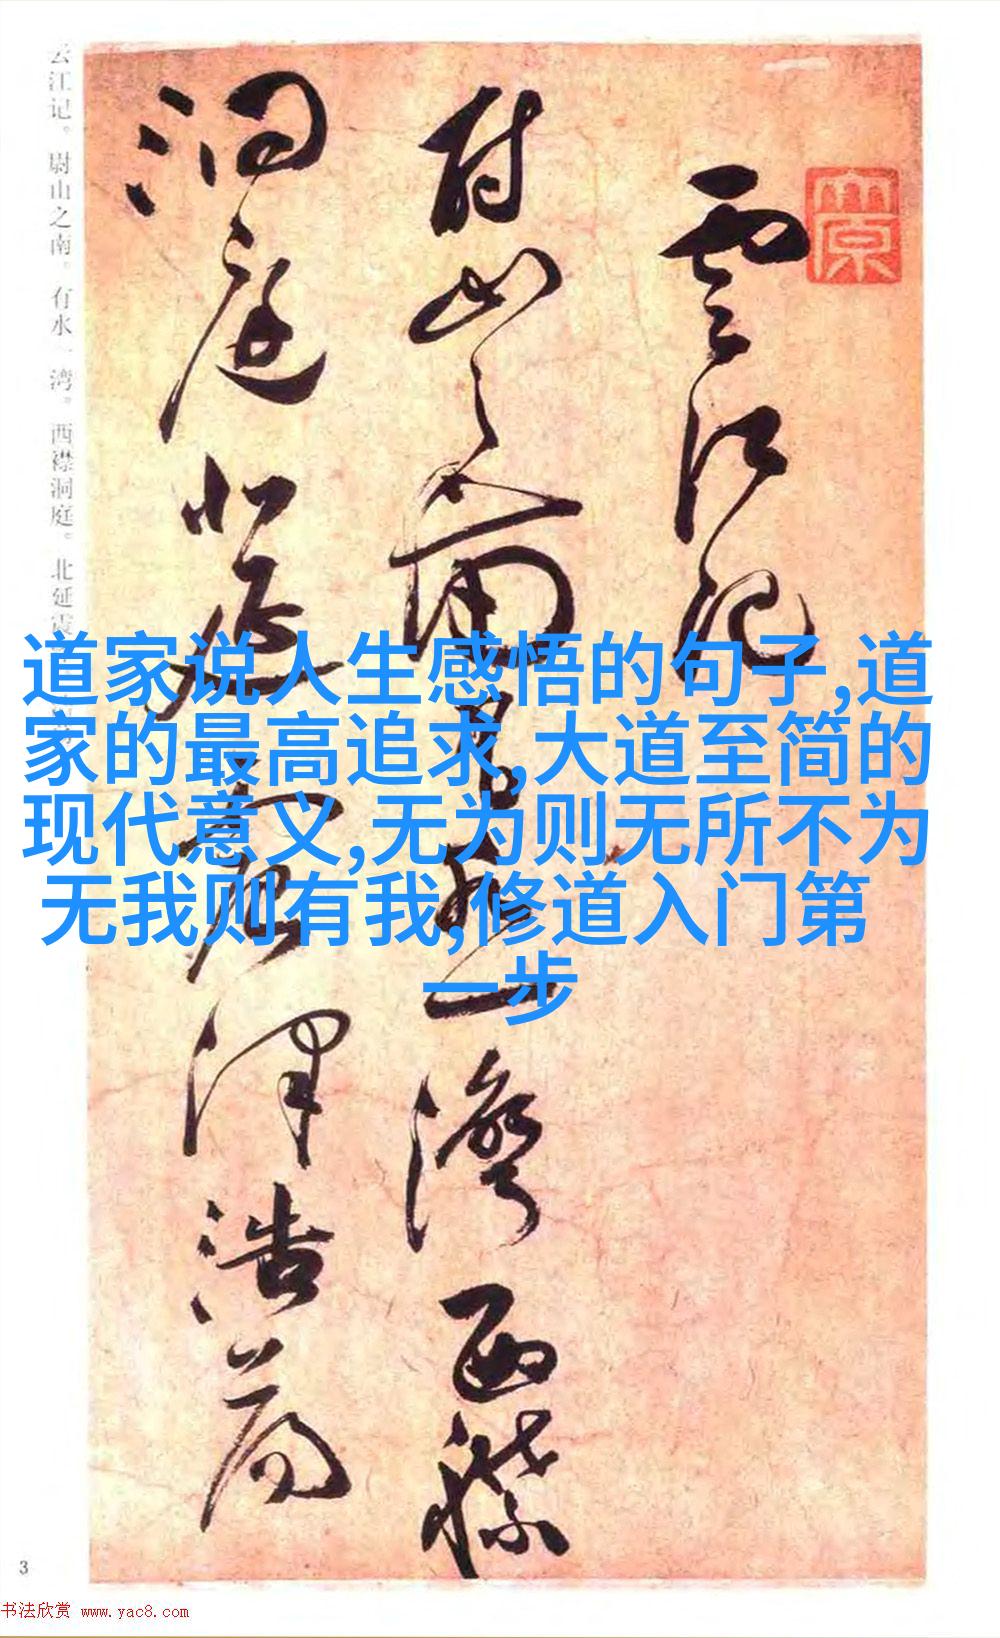 云江记。尉山之南。有水一湾。西襟洞庭。北延震
雲江记
尉山之南有水一湾西襟
洞庭北延震泽浩荡
道家说人生感悟的句子,道
家的最高追求,大道至简的
现代意义,无为则无所不为
无我则有我,修道入门第
一步
3
书法欣赏 www.yac8.com